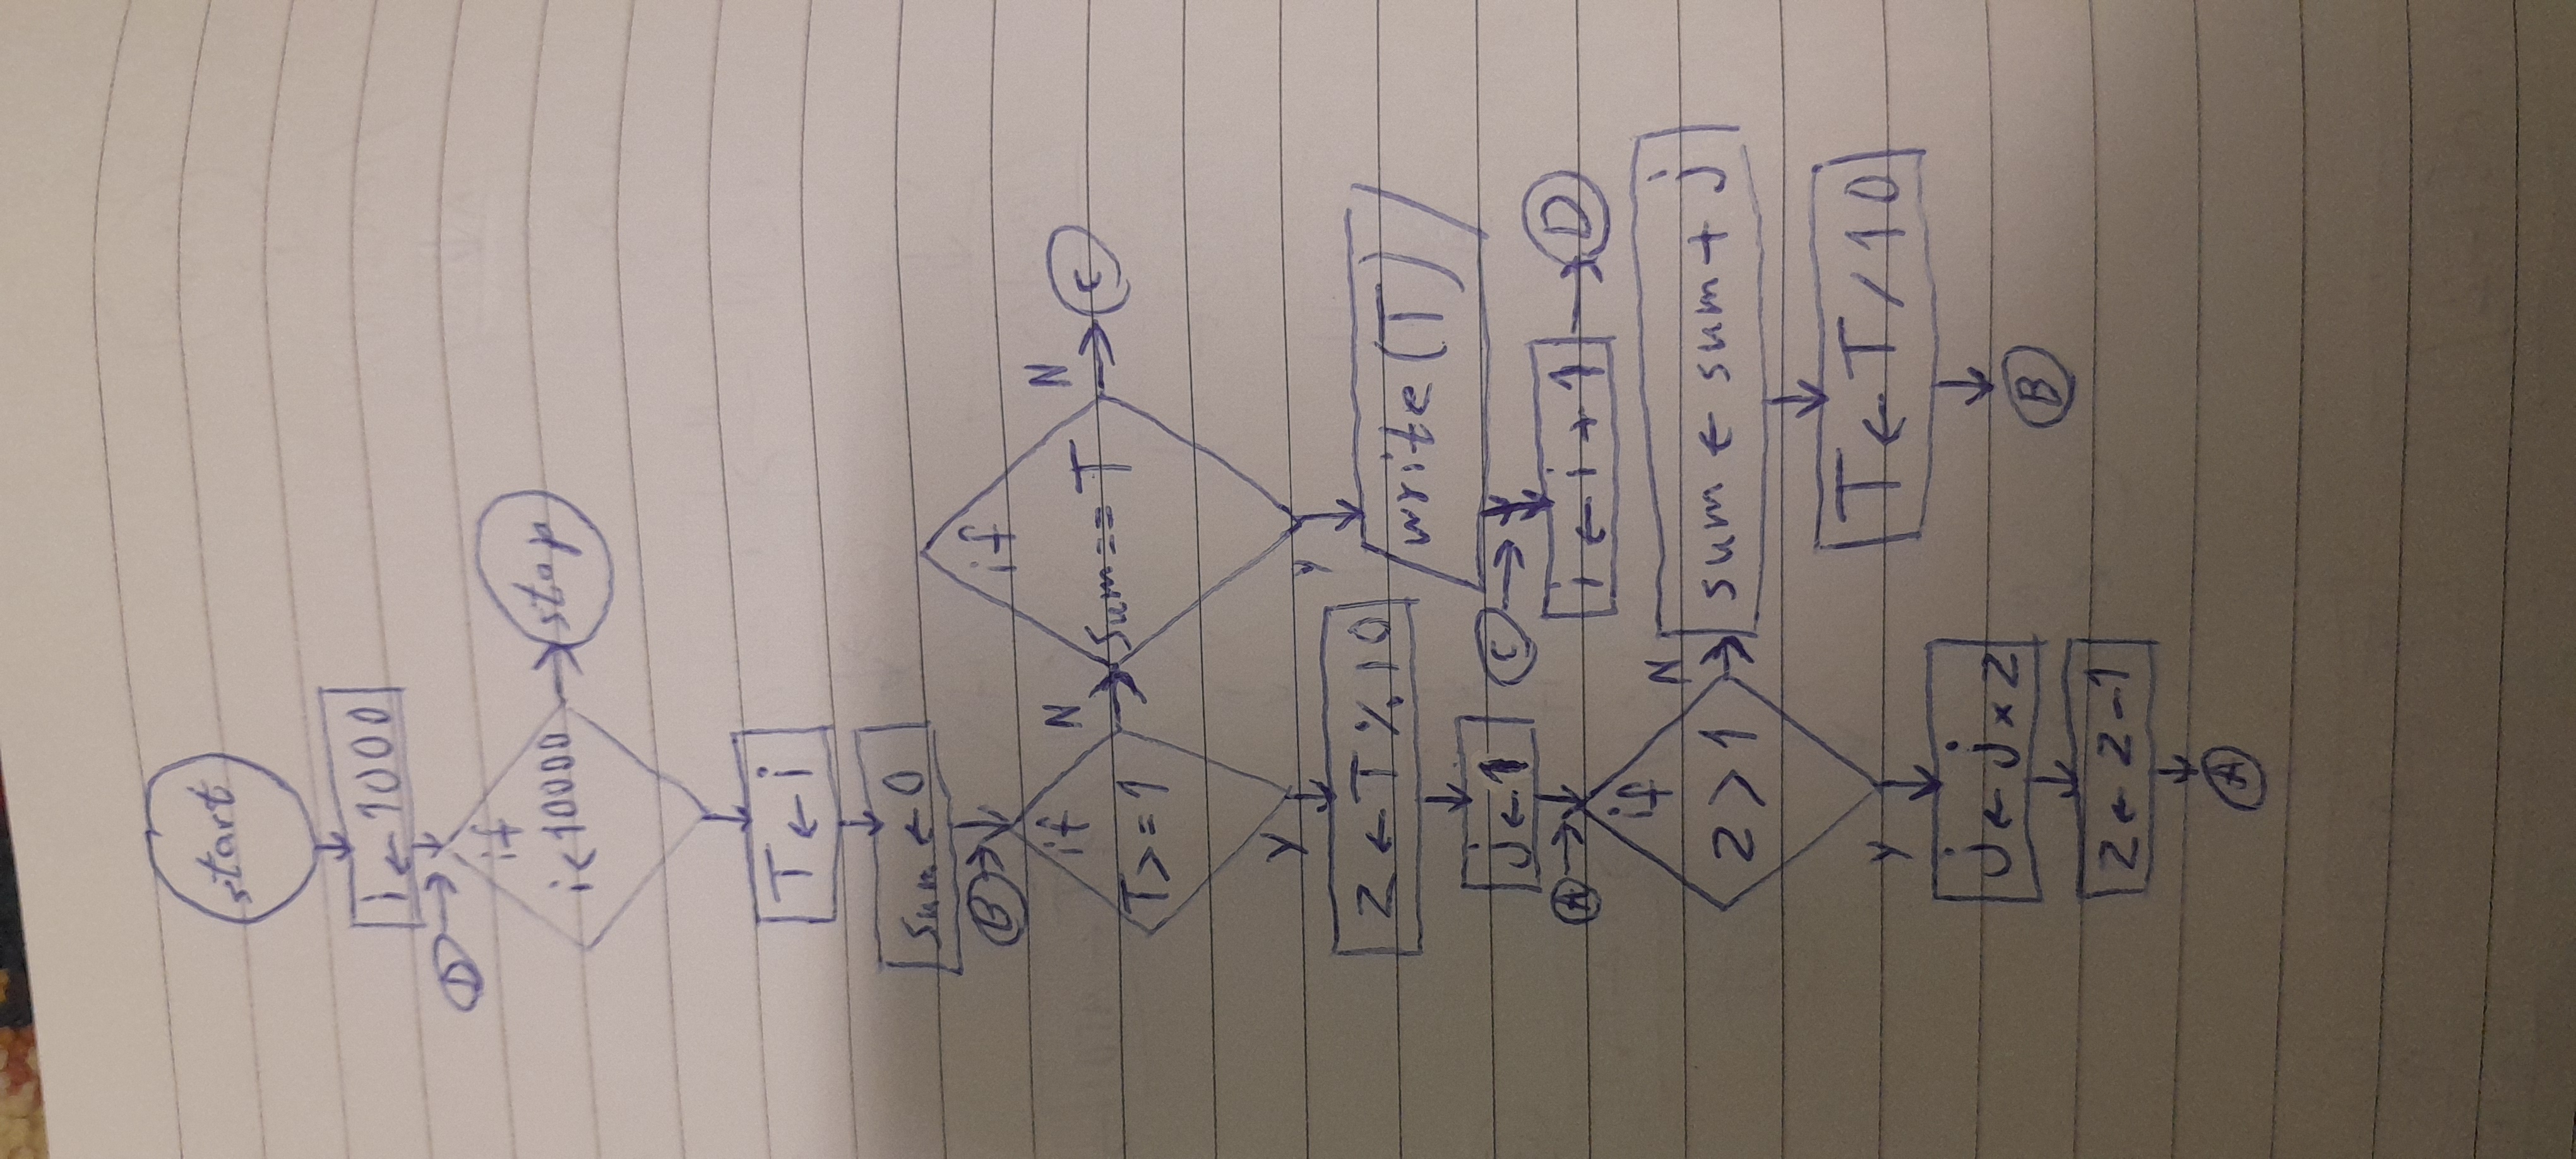 start
i ← 1000
D →
if
i < 10000
stop
T ← i
sum ← 0
B →
if
T >= 1
N
if
sum == T
N
C
Y
Z ← T % 10
Y
write (T)
j ← 1
C →
A →
i ← i + 1
D
if
Z > 1
N
sum ← sum + j
T ← T / 10
Y
j ← j × Z
B
Z ← Z - 1
A